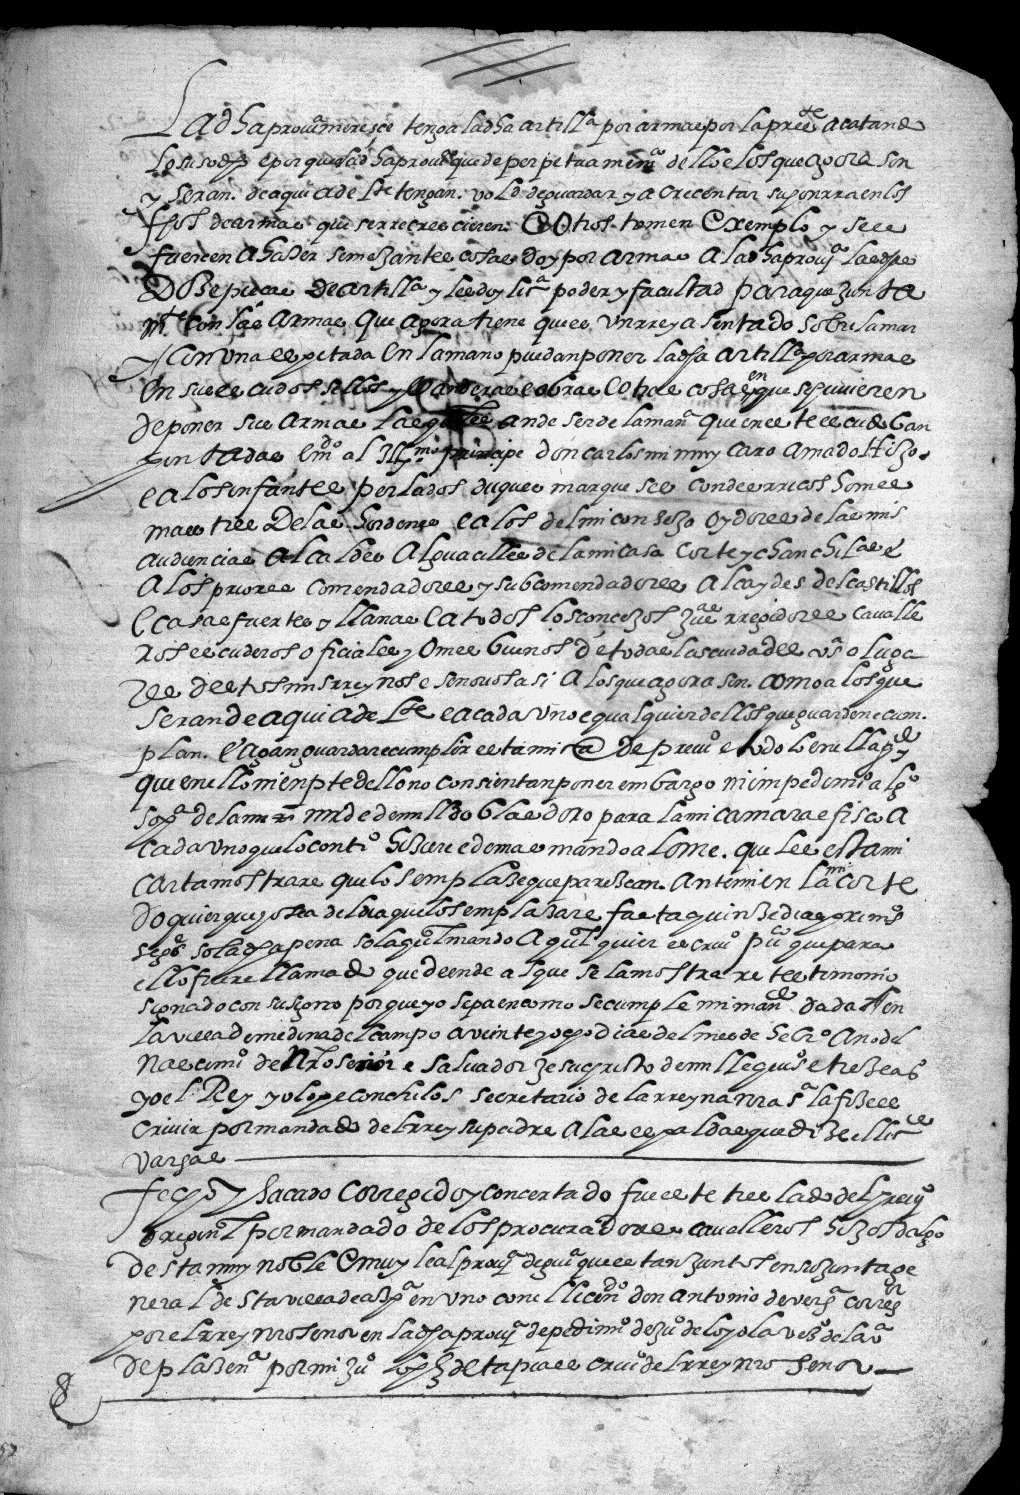 La dha prouª meresçe tenga la dha artillª por armas por la preste acatando
lo susodho e porque la dha prouª quede perpetua memª dello e los que agora son
y seran de aqui adelte tengan voltd de guardar y acrecentar su honrra en los
fhos de armas que se rrecrecieren e otros tomen exemplo y se es
fuercen a haser semejantes cosas doy por armas a la dha prouª las dhas
Doze pieças de artillª y les doy licª poder y facultad para que junta
mte con las armas que agora tiene que es vn rrey asentado sobre la mar
y con vna espada en la mano puedan poner la dha artillª por armas
en sus escudos sellos y vanderas e obras e otras cosas en que se quisieren
de poner sus armas las quales an de ser de la manª que en este escudo ban
pintadas e mdo al Illmo principe don carlos mi muy caro amado Hijo.
e a los infantes perlados duques marqueses condes rricos homes
maestres De las hordenes e a los del mi consejo oydores de las mis
audiencias alcaldes alguaciles de la mi casa corte y chancills e
a los priores comendadores y subcomendadores alcaydes del castillos
e casas fuertes y llanas e a todos los concejos jues rregidores cavalle
ros escuderos oficiales y omes buenos de todas las ciudades vªs o luga
res destos mis rreynos e senorios asi a los que agora son como a los que
seran de aqui adelte e a cada vno e qualquier dellos que guarden e cum.
plan. e agan guardar e cumplir esta mi ca de preuº e todo lo en ella qdo y
que en ello ni en pte dello no consientan poner embargo ni impedimº algº
so pª de la mi md e de mill doblas de oro para la mi camara e fisco a
cada vno que lo contº hiziere e demas mando al ome. que les esta mi
carta mostrare que los emplaze que parezcan. ante mi en la mi corte
do quier que yo sea del dia que los emplazare fasta quinze dias primºs
segtes so la dha pena so la qual mando a qualquier escriuº puco que para
ello fuere llamado que de ende a l que se la mostrare testimonio
signado con su signo porque yo sepa en como se cumple mi mando dada en
la villa de medina del campo a veinte y ocho dias del mes de hebrº ano del
nascimº de Nro senor e saluador jesucristo de mill e qusº e treze as
yo el Rey yo lope conchilos secretario de la rreyna nra sª la fize es
criuir por mandado del rrey su padre a las espaldas que dize el licdo
vargas
fecho y sacado corregido y concertado fue este treslado del preuº
original por mandado de los procuradores caualleros hijosdalgo
desta muy noble e muy leal prouª de guiª que estan juntos en su junta ge
neral desta villa de azpª en vno con el licendo don antonio de verª corregr
por el rrey nro senor en la dha prouª de pedimº de juº de loyola vezº de la vª
de plazenª por mi juº lopez de tapia escriuº del rrey nro senor